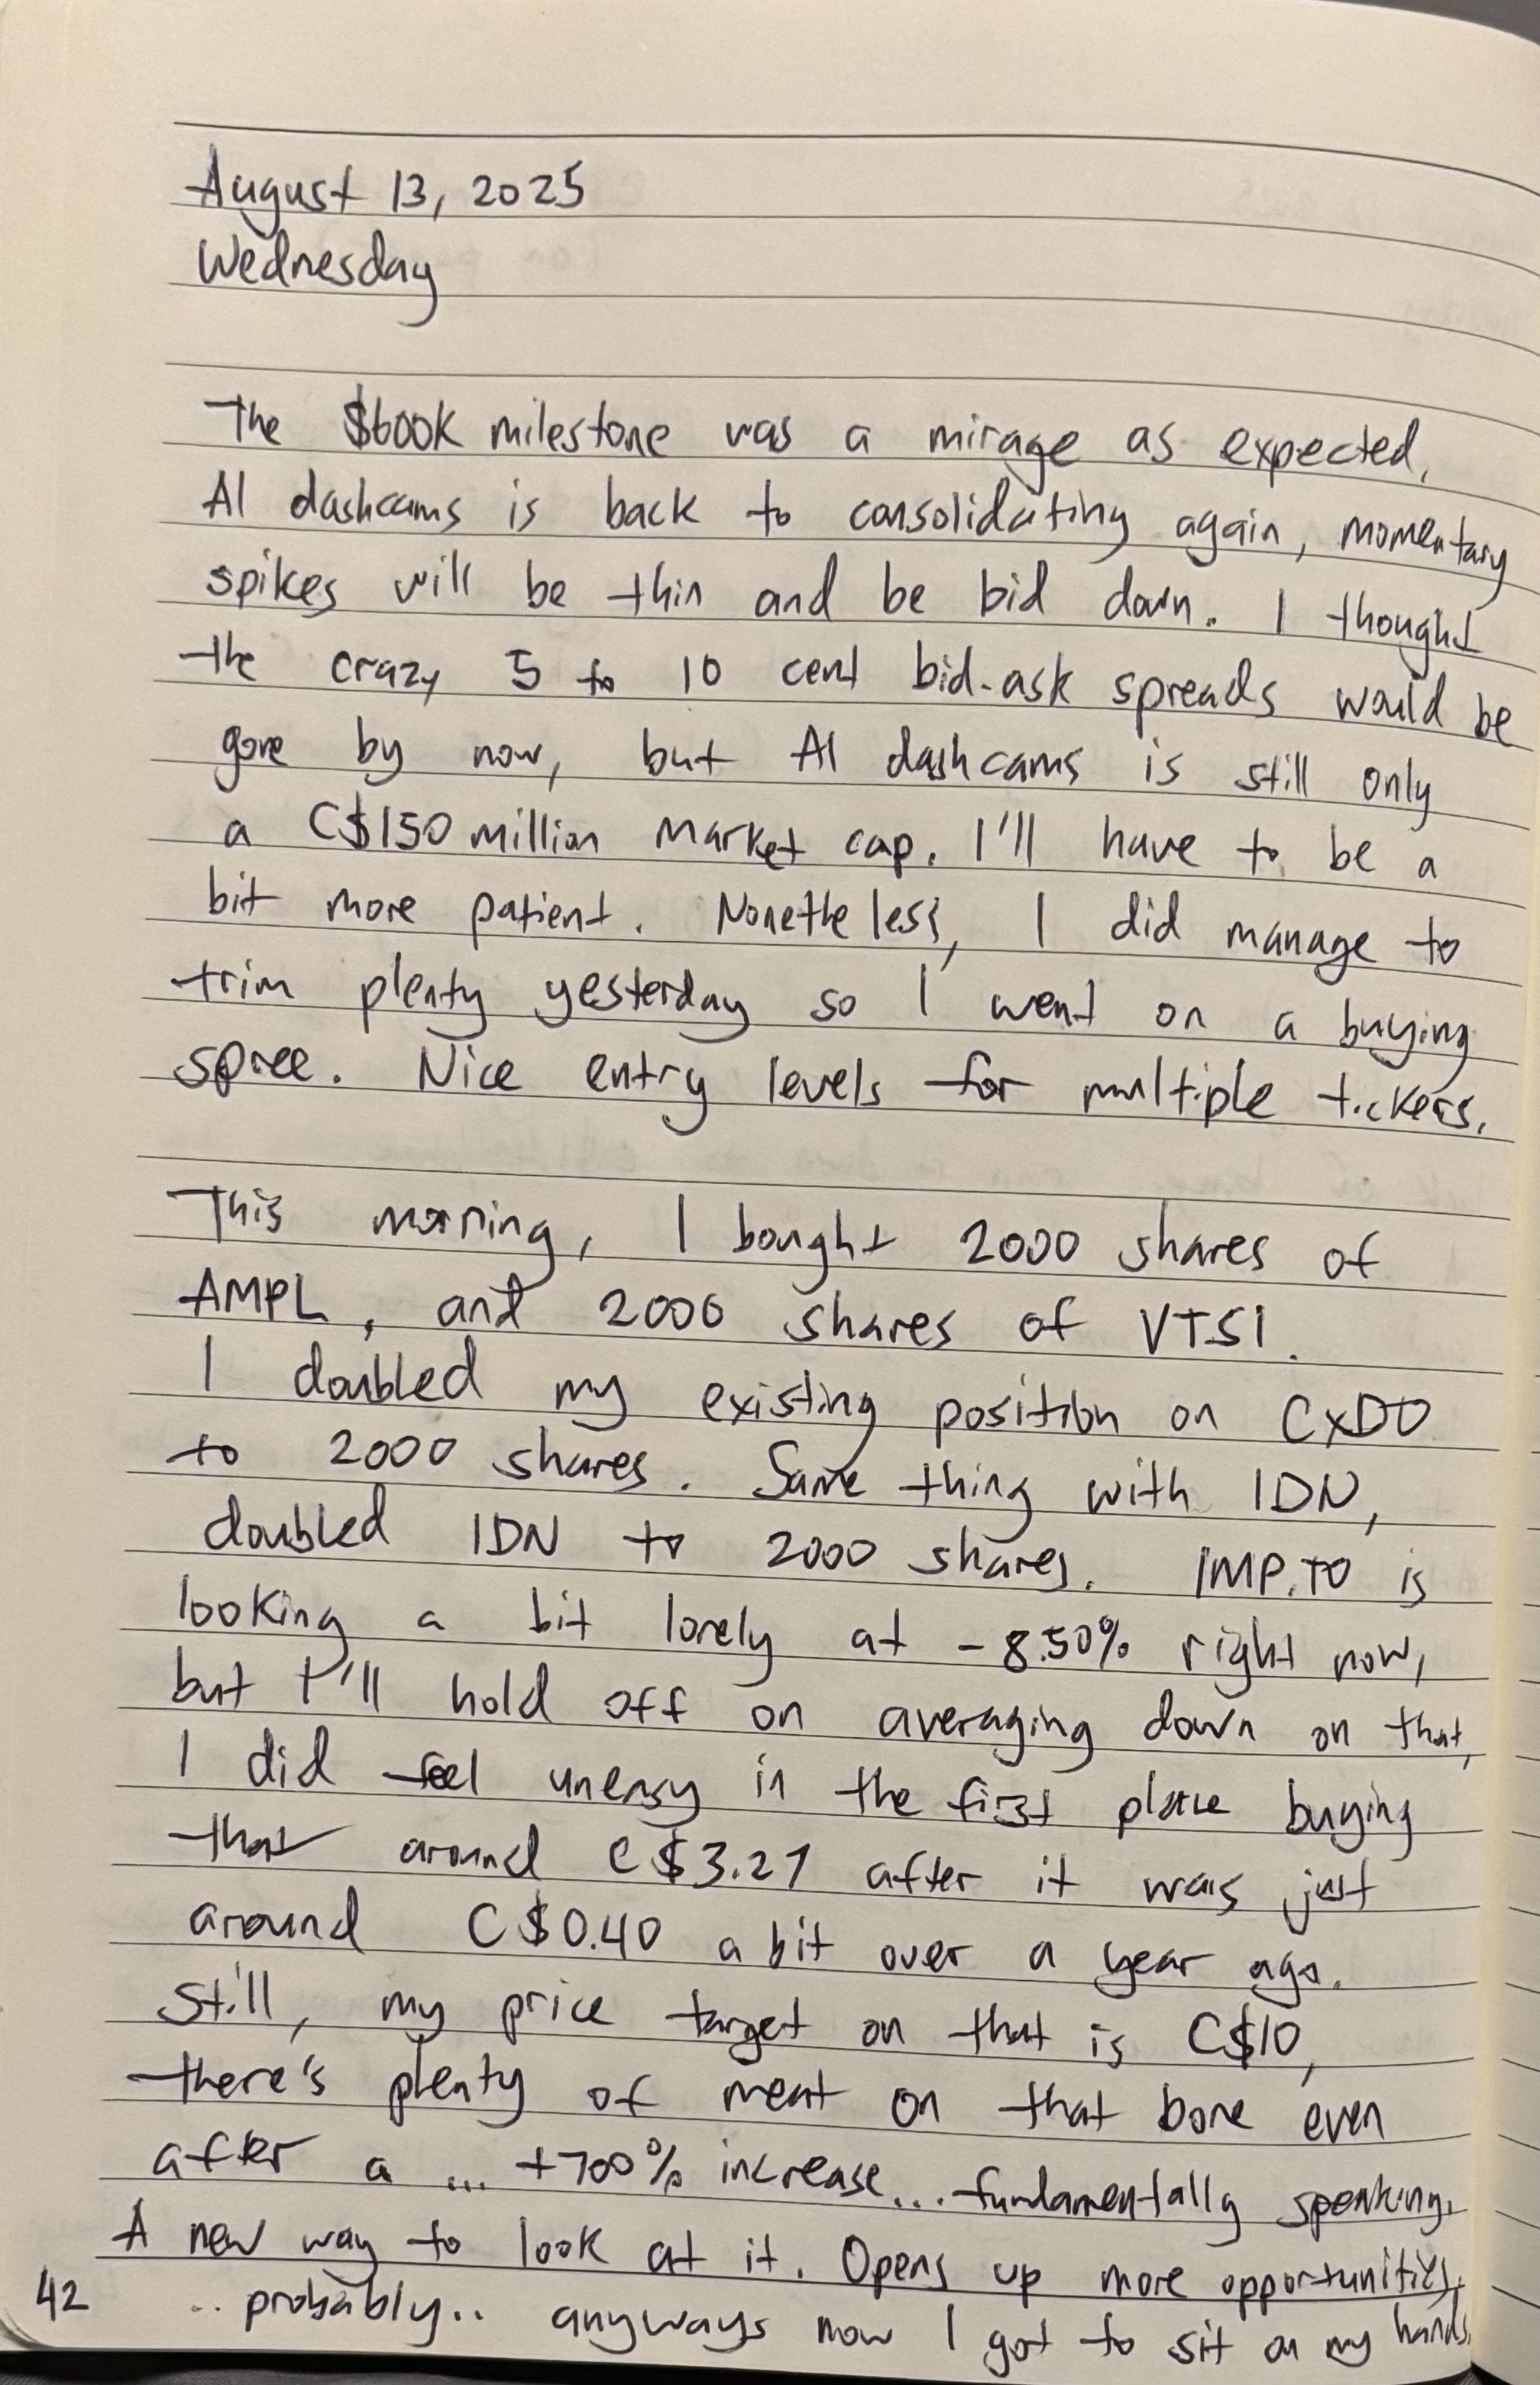 August 13, 2025
Wednesday
The $600K milestone was a mirage as expected,
AI dashcams is back to consolidating again, momentary
spikes will be thin and be bid down. I thought
the crazy 5 to 10 cent bid-ask spreads would be
gone by now, but AI dashcams is still only
a C$150 million market cap. I'll have to be a
bit more patient. Nonetheless, I did manage to
trim plenty yesterday so I went on a buying
spree. Nice entry levels for multiple tickers.
This morning, I bought 2000 shares of
AMPL, and 2000 shares of VTSI.
I doubled my existing position on CXDO
to 2000 shares. Same thing with IDN,
doubled IDN to 2000 shares. IMP.TO is
looking a bit lonely at -8.50% right now,
but I'll hold off on averaging down on that,
I did feel uneasy in the first place buying
that around C$3.27 after it was just
around C$0.40 a bit over a year ago.
Still, my price target on that is C$10,
there's plenty of meat on that bone even
after a ... +700% increase... fundamentally speaking.
A new way to look at it. Opens up more opportunities,
.. probably.. anyways now I got to sit on my hands.
42